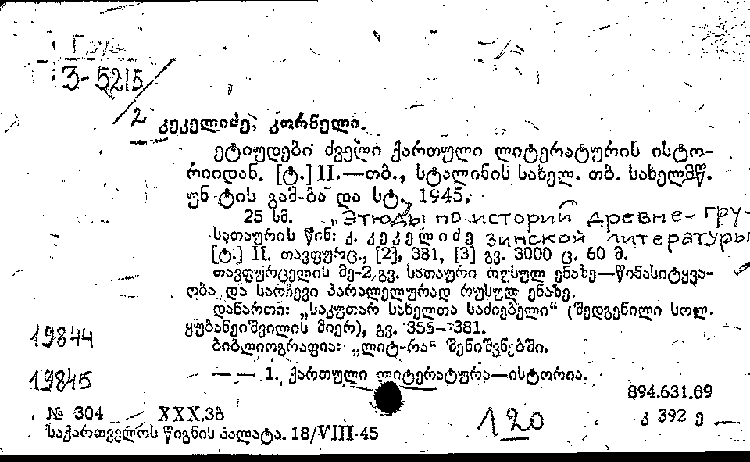 Груз
3-5215/2
კეკელიძე, კორნელი.
ეტიუდები ძველი ქართული ლიტერატურის ისტო-
რიიდან. [ტ.] II.—თბ., სტალინის სახელ. თბ. სახელმწ.
უნ-ტის გამ-ბა და სტ., 1945.
25 სმ. „Этюды по истории древне-гру-
სათაურის წინ: კ. კეკელიძე зинской литературы
[ტ.] II. თავფურც., [2], 381, [3] გვ. 3000 ც. 60 მ.
თავფურცელის მე-2 გვ. სათაური რუსულ ენაზე—წინასიტყვა-
ობა და სარჩევი პარალელურად რუსულ ენაზე.
დანართი: „საკუთარ სახელთა საძიებელი“ (შედგენილი სოლ.
ყუბანეიშვილის მიერ), გვ. 355-381.
ბიბლიოგრაფია: „ლიტ-რა“ შენიშვნებში.
19844
19845
— — 1. ქართული ლიტერატურა—ისტორია.
894.631.09
№ 304 XXX,38 120 კ 392 ე
საქართველოს წიგნის პალატა. 18/VIII-45